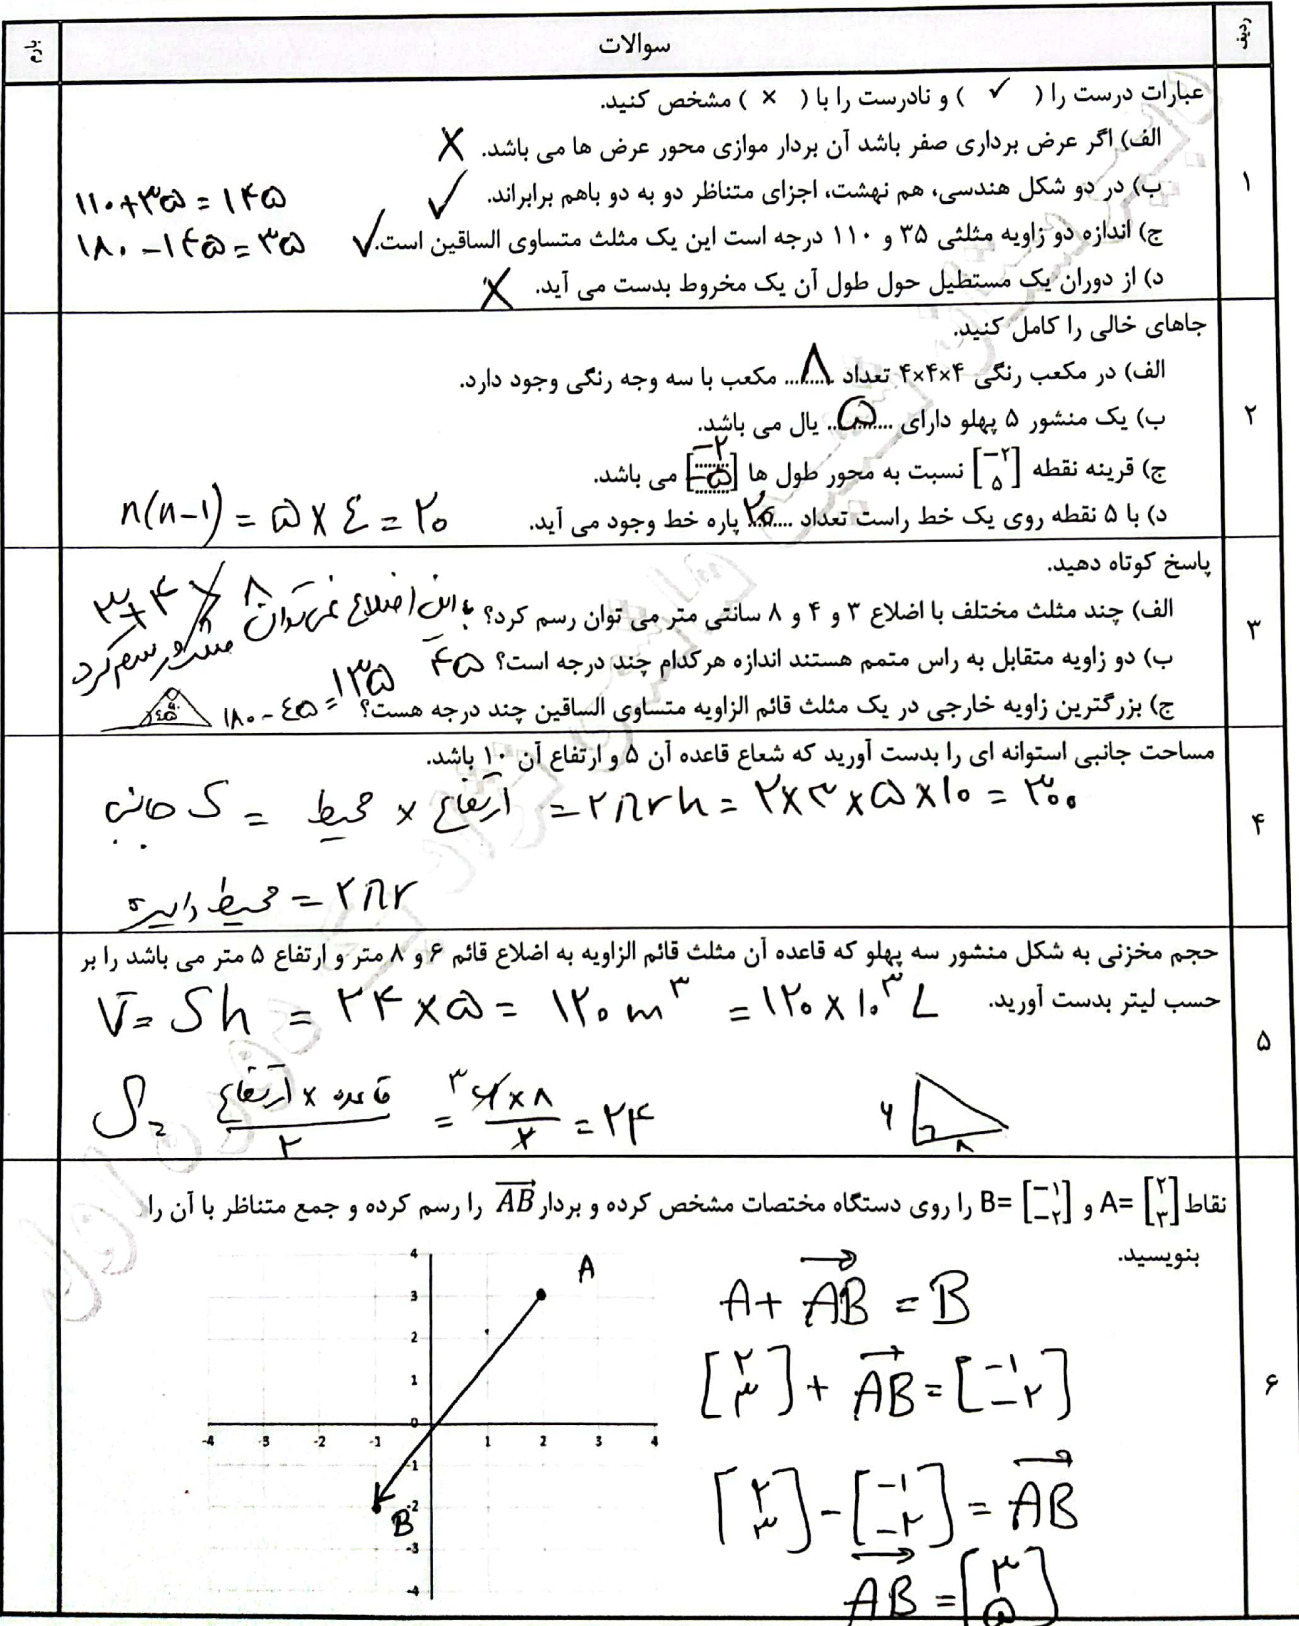 ردیف سوالات بارم
عبارات درست را ( ✓ ) و نادرست را با ( × ) مشخص کنید.
الف) اگر عرض برداری صفر باشد آن بردار موازی محور عرض ها می باشد. ×
۱ ب) در دو شکل هندسی، هم نهشت، اجزای متناظر دو به دو باهم برابراند. ✓
۱۱۰+۳۵=۱۴۵
ج) اندازه دو زاویه مثلثی ۳۵ و ۱۱۰ درجه است این یک مثلث متساوی الساقین است. ✓
۱۸۰-۱۴۵=۳۵
د) از دوران یک مستطیل حول طول آن یک مخروط بدست می آید. ×
جاهای خالی را کامل کنید.
الف) در مکعب رنگی ۴×۴×۴ تعداد ...۸... مکعب با سه وجه رنگی وجود دارد.
۲ ب) یک منشور ۵ پهلو دارای ...۵... یال می باشد.
ج) قرینه نقطه [-۲ ۵] نسبت به محور طول ها [-۲ -۵] می باشد.
د) با ۵ نقطه روی یک خط راست تعداد ...۲۰... پاره خط وجود می آید.
n(n-1) = ۵×٤ = ۲۰
پاسخ کوتاه دهید.
۳ الف) چند مثلث مختلف با اضلاع ۳ و ۴ و ۸ سانتی متر می توان رسم کرد؟ با این اضلاع نمی توان مثلث رسم کرد
۳+۴ ۸
ب) دو زاویه متقابل به راس متمم هستند اندازه هرکدام چند درجه است؟ ۴۵
ج) بزرگترین زاویه خارجی در یک مثلث قائم الزاویه متساوی الساقین چند درجه هست؟ ۱۸۰-٤۵=۱۳۵
٤۵ ۹۰
مساحت جانبی استوانه ای را بدست آورید که شعاع قاعده آن ۵ و ارتفاع آن ۱۰ باشد.
۴ S جانبی = محیط × ارتفاع = ۲πrh = ۲×۳×۵×۱۰ = ۳۰۰
محیط دایره = ۲πr
حجم مخزنی به شکل منشور سه پهلو که قاعده آن مثلث قائم الزاویه به اضلاع قائم ۶ و ۸ متر و ارتفاع ۵ متر می باشد را بر
حسب لیتر بدست آورید.
V = Sh = ۲۴×۵ = ۱۲۰ m۳ = ۱۲۰×۱۰۳ L
۵
S = قاعده × ارتفاع / ۲ = ۳ ۶×۸ / ۲ = ۲۴
۶ ۸
نقاط A= [۲ ۳] و B= [-۱ -۲] را روی دستگاه مختصات مشخص کرده و بردار AB را رسم کرده و جمع متناظر با آن را
بنویسید.
A + AB = B
[۲ ۳] + AB = [-۱ -۲]
۶
[۲ ۳] - [-۱ -۲] = AB
AB = [۳ ۵]
A
B
4
3
2
1
0
-4 -3 -2 -1 1 2 3 4
-1
-2
-3
-4
دبیرستان دوره اول